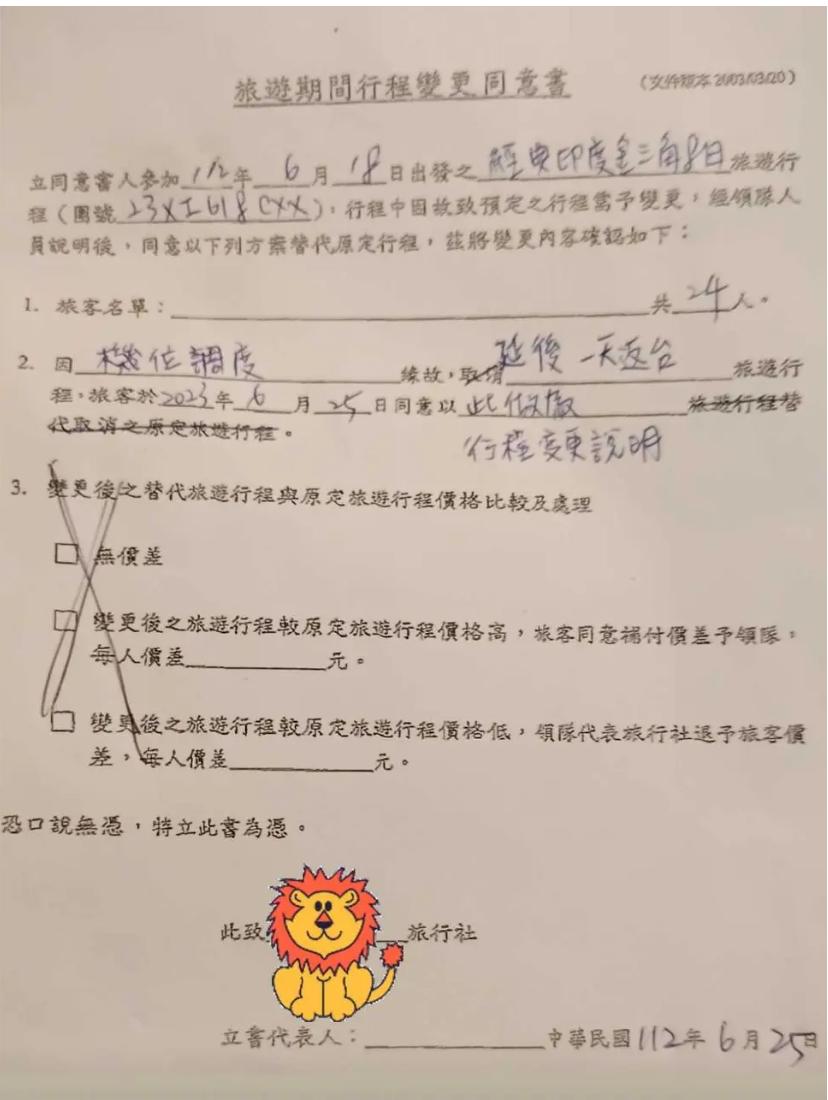 旅遊期間行程變更同意書 (文件版本2003/03/20)
立同意書人參加112年6月18日出發之經典印度金三角8日旅遊行
程(團號23XI618CXX),行程中因故致預定之行程需予變更,經領隊人
員說明後,同意以下列方案替代原定行程,茲將變更內容確認如下:
1. 旅客名單: 共24人。
2. 因機位調度緣故,取消延後一天返台旅遊行
程,旅客於2023年6月25日同意以此做旅遊行程替
代取消之原定旅遊行程。
行程變更說明
3. 變更後之替代旅遊行程與原定旅遊行程價格比較及處理
無價差
變更後之旅遊行程較原定旅遊行程價格高,旅客同意補付價差予領隊,
每人價差元。
變更後之旅遊行程較原定旅遊行程價格低,領隊代表旅行社退予旅客價
差,每人價差元。
恐口說無憑,特立此書為憑。
此致 旅行社
立書代表人: 中華民國112年6月25日